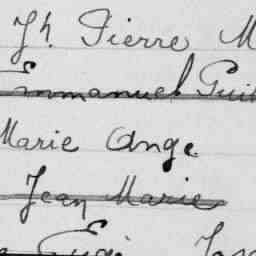 Jh. Pierre M
Emmanuel Guil
Marie Ange
Jean Marie